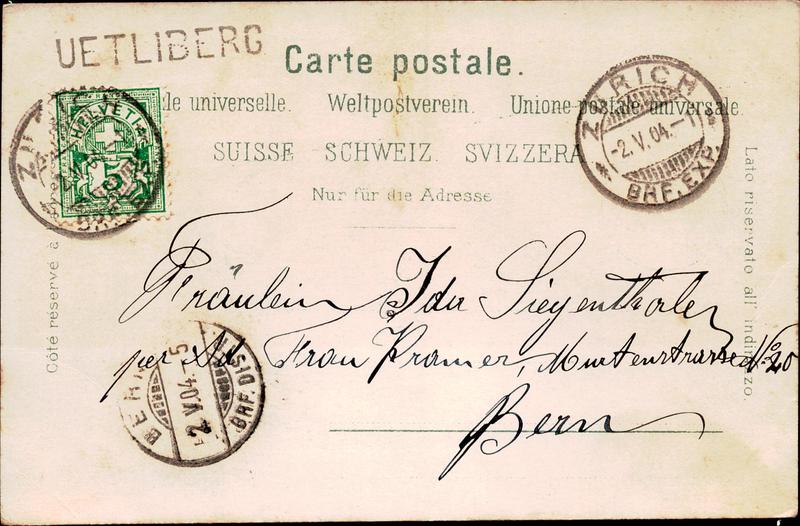 UETLIBERG
Carte postale.
le universelle. Weltpostverein. Unione postale universale
SUISSE SCHWEIZ. SVIZZERA
Nur für die Adresse
HELVETIA
ZÜRICH
-2.V.04.-7
BHF. EXP.
Côté réservé à
Lato riservato all' indirizzo.
Fräulein Ida Siegenthaler
per Ad. Frau Kramer, Murtenstrasse No 20
Bern
BERN
-2.V.04.-5
BHF.